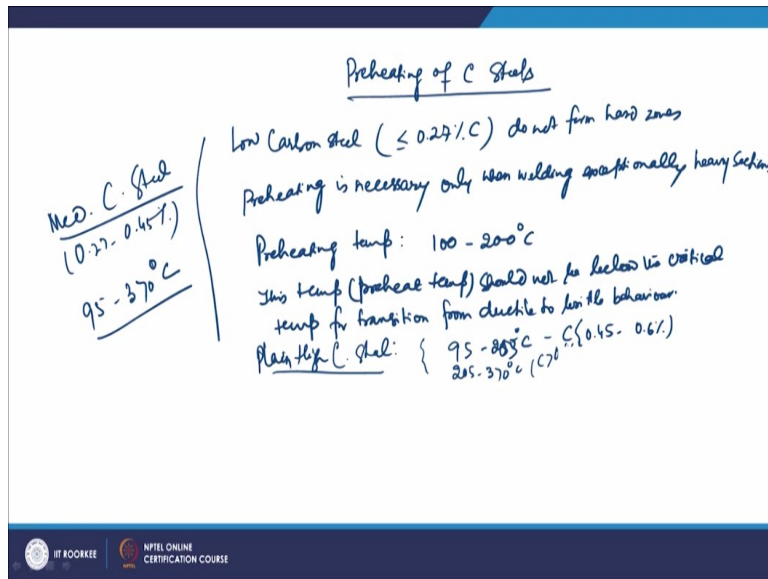 Preheating of C Steels
Low Carbon Steel (≤ 0.27% C) do not form hard zones
Preheating is necessary only when welding exceptionally heavy sections
Preheating temp: 100 - 200°C
This temp (preheat temp) should not be below the critical
temp for transition from ductile to brittle behaviour.
Plain High C. Steel: { 95 - 205°C - C {0.45 - 0.6%)
205 - 370°C (C>0
Med. C. Steel
(0.27 - 0.45%)
95 - 370°C
IIT ROORKEE
NPTEL ONLINE
CERTIFICATION COURSE